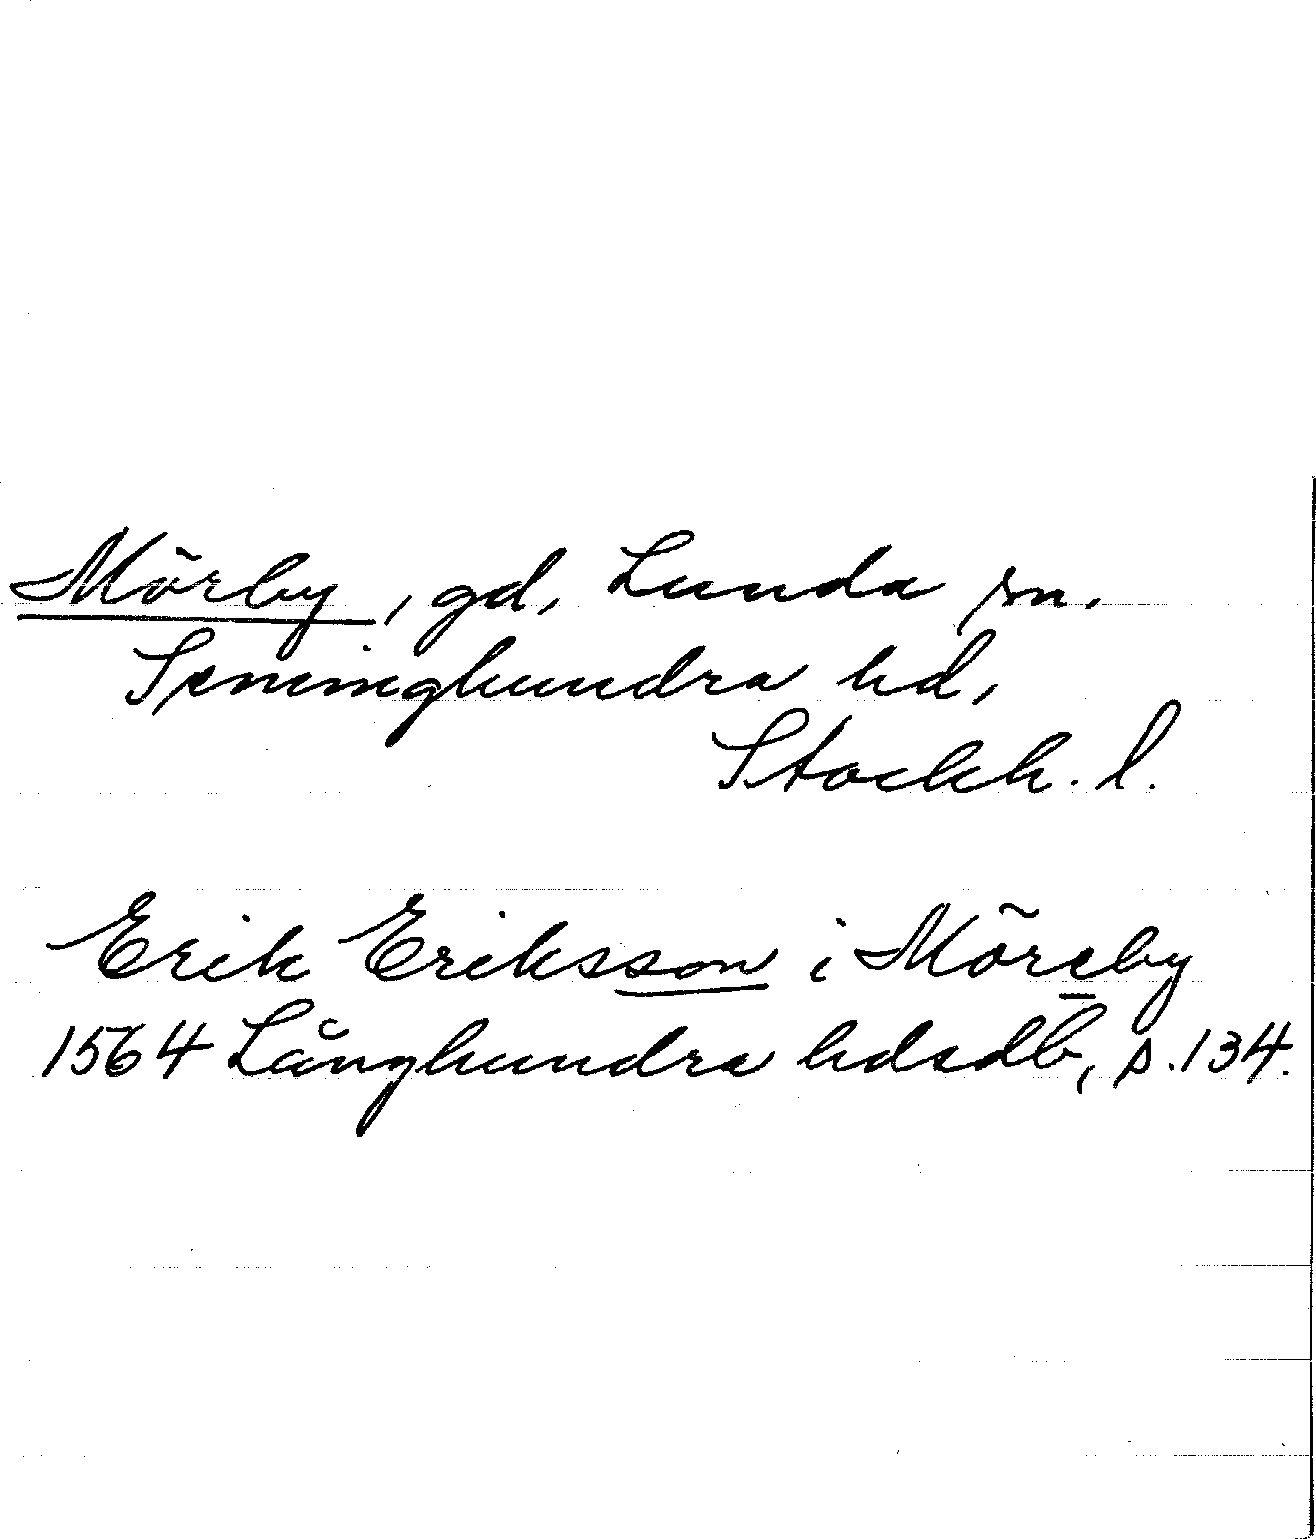 Mörby, gd, Lunda sn.
Seminghundra hd,
Stockh. l.
Erik Eriksson i Möreby
1564 Långhundra hdsdb, s. 134.